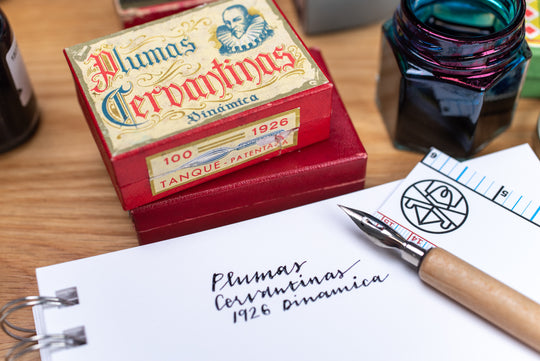 Plumas
Cervantinas
Dinámica
100 1926
TANQUE-PATENTADA
Plumas
Cervantinas
1926 Dinamica